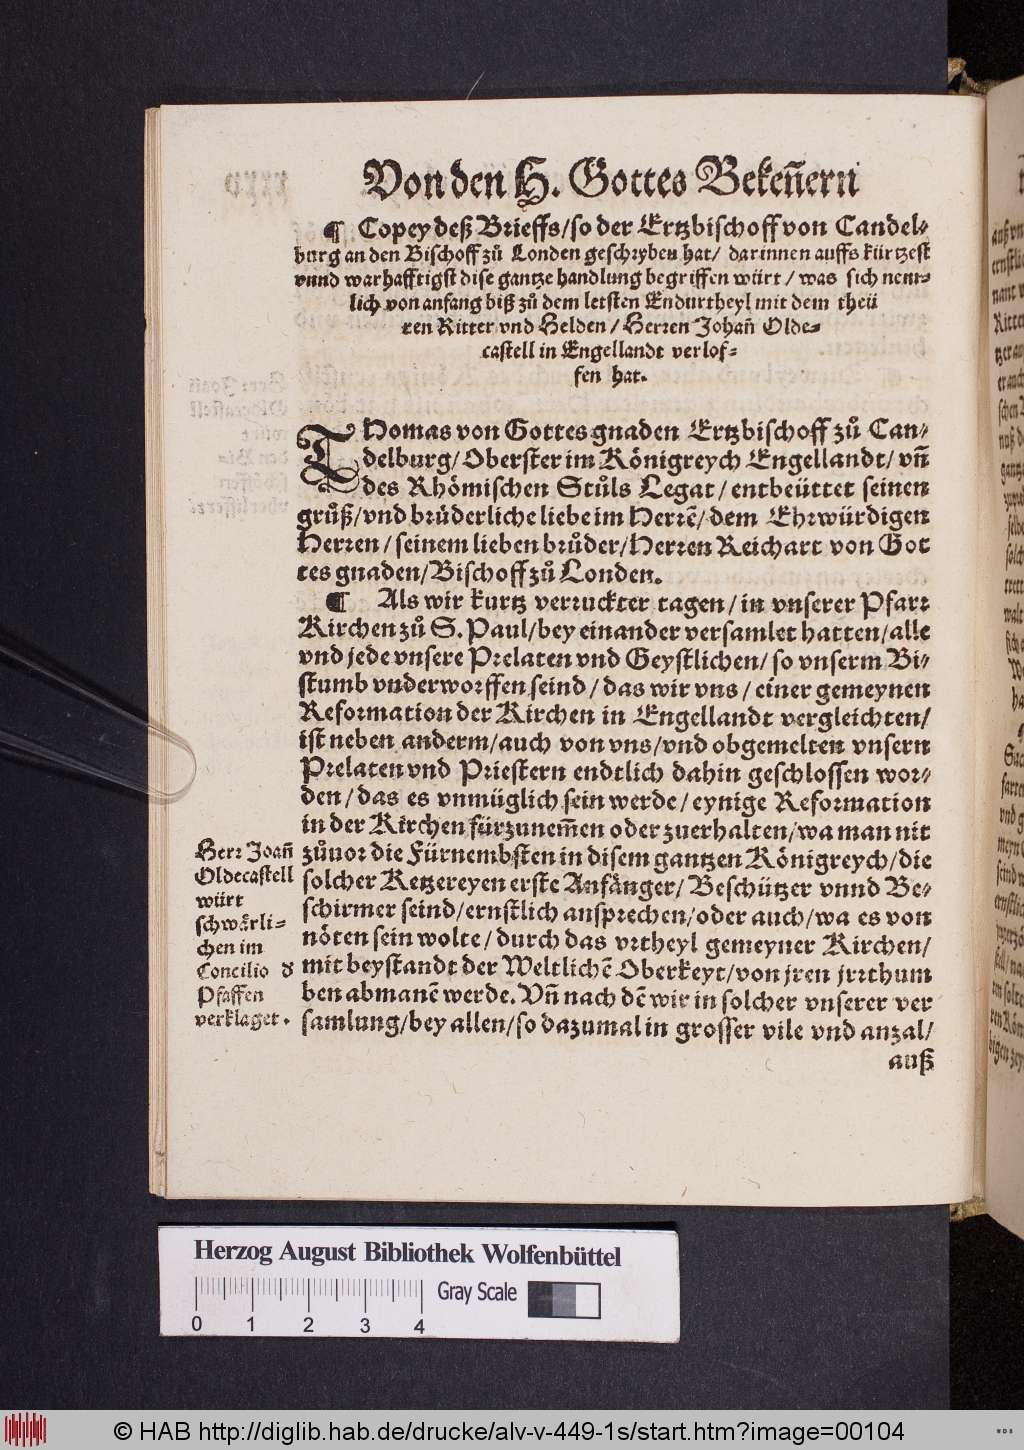 Von den H. Gottes Bekeñern
¶ Copey deß Brieffs/so der Ertzbischoff von Candel-
burg an den Bischoff zů Londen geschryben hat/ darinnen auffs kürtzest
vnnd warhafftigst dise gantze handlung begriffen würt/ was sich nem-
lich von anfang biß zů dem letsten Endurtheyl mit dem theü
ren Ritter vnd Helden/ Herren Johañ Olde-
castell in Engellandt verlof-
fen hat.
THomas von Gottes gnaden Ertzbischoff zů Can-
delburg/ Oberster im Königreych Engellandt/ vñ
des Rhömischen Stůls Legat/ entbeüttet seinen
grůß/vnd brůderliche liebe im Herrē/ dem Ehrwürdigen
Herren/ seinem lieben brůder/Herren Reichart von Got
tes gnaden/Bischoff zů Londen.
¶ Als wir kurtz verruckter tagen/ in vnserer Pfarr
Kirchen zů S. Paul/bey einander versamlet hatten/alle
vnd jede vnsere Prelaten vnd Geystlichen/ so vnserm Bi-
stumb vnderworffen seind/ das wir vns/ einer gemeynen
Reformation der Kirchen in Engellandt vergleichten/
ist neben anderm/auch von vns/vnd obgemelten vnsern
Prelaten vnd Priestern endtlich dahin geschlossen wor-
den/ das es vnmüglich sein werde/ eynige Reformation
in der Kirchen fürzunem̃en oder zuerhalten/wa man nit
zůuor die Fürnembsten in disem gantzen Königreych/die
solcher Ketzereyen erste Anfänger/ Beschützer vnnd Be-
schirmer seind/ernstlich ansprechen/oder auch/wa es von
nöten sein wolte/ durch das vrtheyl gemeyner Kirchen/
mit beystandt der Weltlichē Oberkeyt/von jren jrrthum
ben abmanē werde. Vñ nach dē wir in solcher vnserer ver
samlung/bey allen/so dazumal in grosser vile vnd anzal/
auß
Herr Joañ
Oldecastell
würt
schwärli-
chen im
Concilio ꝺ
Pfaffen
verklaget.
Herzog August Bibliothek Wolfenbüttel
Gray Scale
0 1 2 3 4
© HAB http://diglib.hab.de/drucke/alv-v-449-1s/start.htm?image=00104